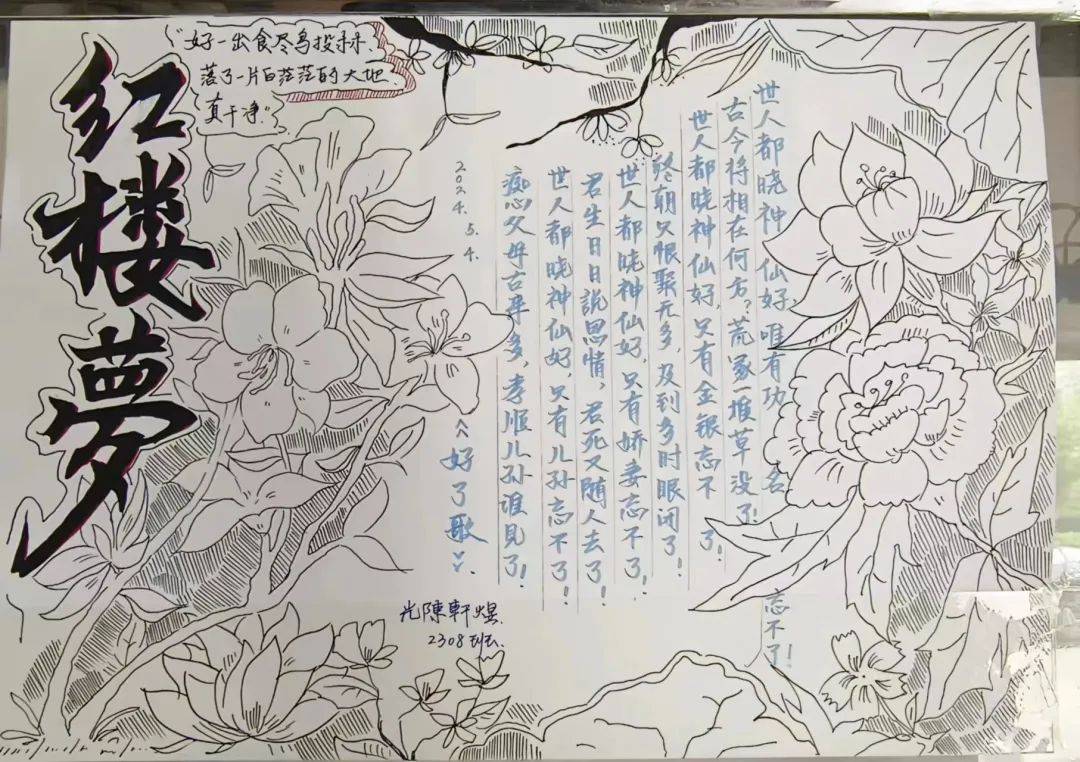 红楼夢
"好一出食尽鸟投林,
落了一片白茫茫的大地.
真干净"
世人都晓神仙好,唯有功名忘不了!
古今将相在何方?荒冢一堆草没了!
世人都晓神仙好,只有金银忘不了!
终朝只恨聚无多,及到多时眼闭了!
世人都晓神仙好,只有娇妻忘不了!
君生日日説恩情,君死又随人去了!
世人都晓神仙好,只有儿孙忘不了!
父母古来多,孝顺儿孙谁见了!
《好了歌》
2024.5.4.
陳軒
2308班.